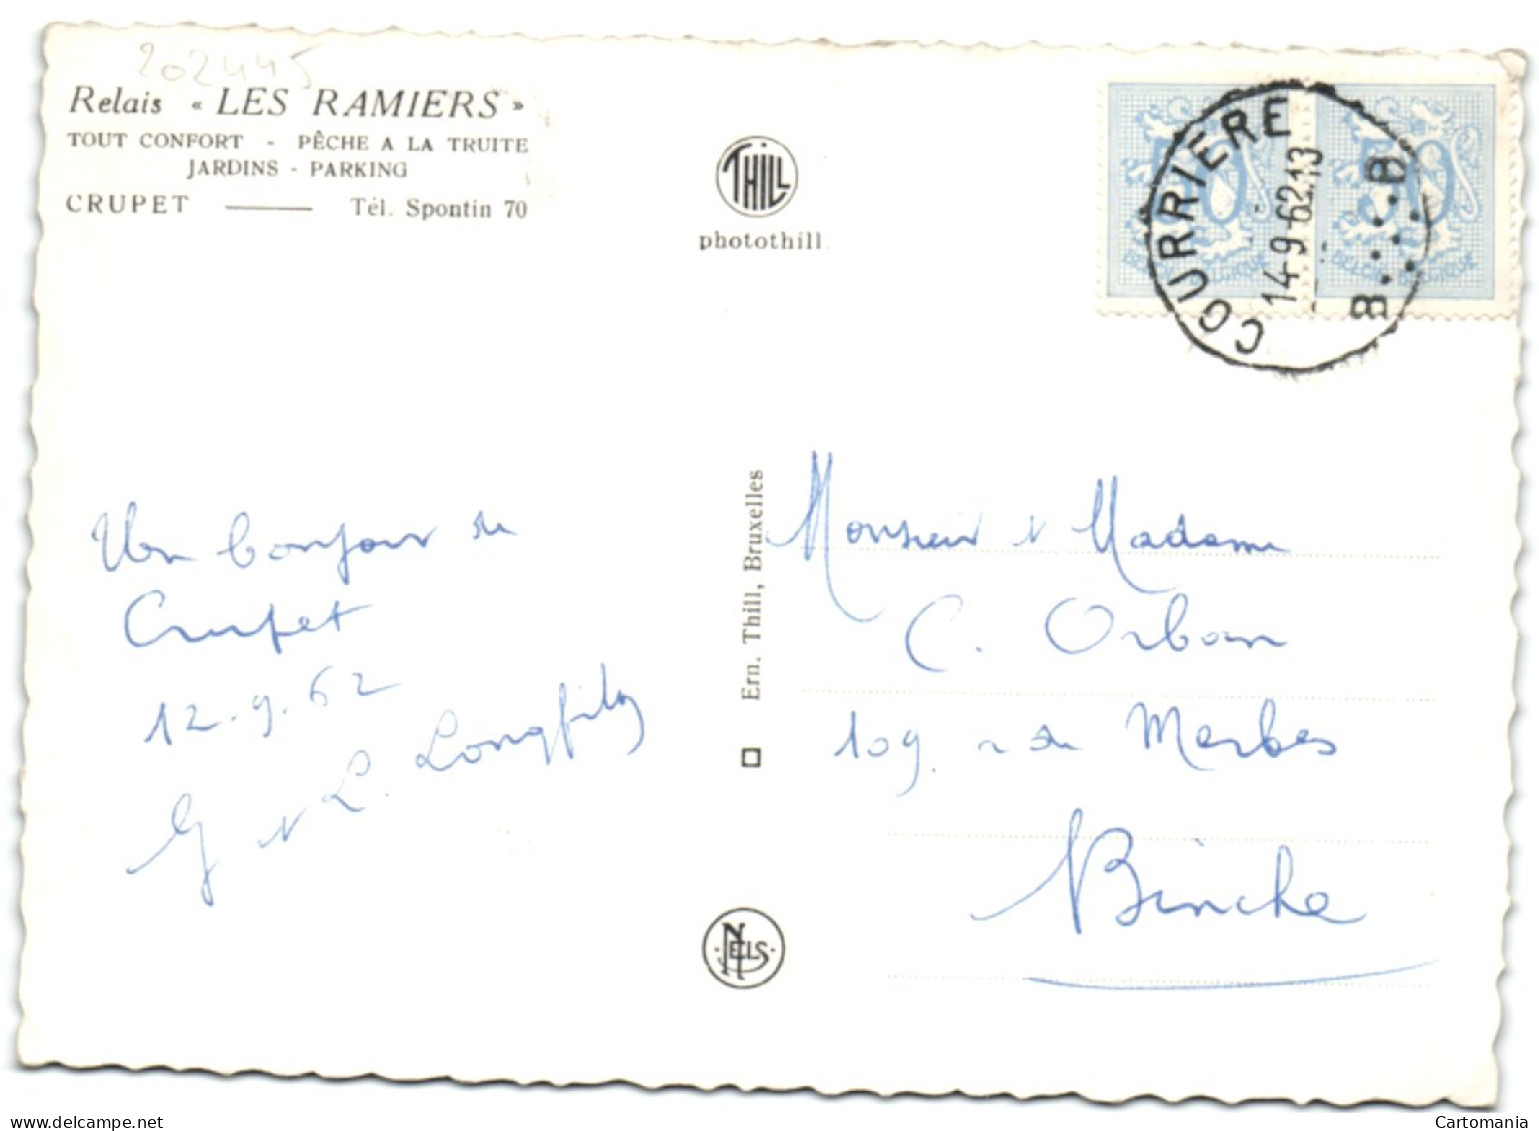 202445
Relais « LES RAMIERS »
TOUT CONFORT - PÊCHE A LA TRUITE
JARDINS - PARKING
CRUPET —— Tél. Spontin 70
THILL
photothill
COURRIERE
14-9-62 13
B B
50 50
BELGIE-BELGIQUE BELGIE-BELGIQUE
Un bonjour de
Crupet
12.9.62
G et L. Longfils
Ern. Thill, Bruxelles
NELS
Monsieur et Madame
C. Orban
109 rue de Merbes
Binche
delcampe.net
Cartomania